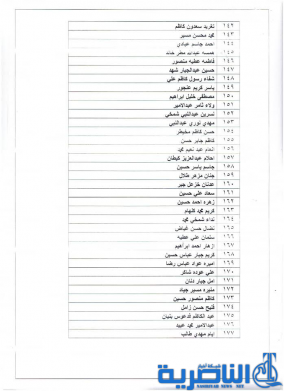 ١٤٢ تغريد سعدون كاظم
١٤٣ كيد محسن مسير
١٤٤ احمد جاسم عبادي
١٤٥ خمسه عبدالله مطر خالد
١٤٦ فاطمه عطيه منصور
١٤٧ حسين عبدالجبار شهد
١٤٨ شفاء رسول كاظم علي
١٤٩ ياسر كريم عنجور
١٥٠ مصطفى خليل ابراهيم
١٥١ ولاء ثامر عبدالامير
١٥٢ نسرين عبدالنبي شمخي
١٥٣ مهدي نوري عبدالنبي
١٥٤ حسن كاظم مخيطر
١٥٥ كاظم جابر حسن
١٥٦ الهام عبد نعيم كيد
١٥٧ احلام عبدالعزيز كيطان
١٥٨ جاسم ياسر حسين
١٥٩ جنان مزهر طلال
١٦٠ عدنان خزعل جبر
١٦١ سعاد علي حسين
١٦٢ زهره احمد حسين
١٦٣ كريم كيد كلهام
١٦٤ نداء شمخي كيد
١٦٥ نضال حسن فياض
١٦٦ سلمان علي عطيه
١٦٧ ازهار احمد ابراهيم
١٦٨ كريم جبار عباس حسين
١٦٩ اميره عواد عباس رضا
١٧٠ علي عوده شاكر
١٧١ امل جبار دنان
١٧٢ منيره مسير جياد
١٧٣ كاظم منصور حسين
١٧٤ فليح حسن زامل
١٧٥ عبد الكاظم لدعوس بنيان
١٧٦ عبدالامير كيد عبيد
١٧٧ ايام مهدي طالب
شبكة أخبار
الناصرية